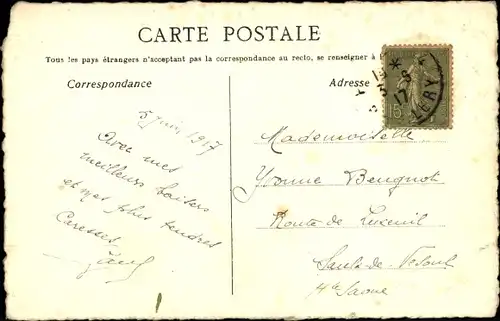 CARTE POSTALE
Tous les pays étrangers n'acceptant pas la correspondance au recto, se renseigner à
Correspondance
Adresse
15
5 Juin 1917
Avec mes
meilleurs baisers
et mes plus tendres
Caresses
Mademoiselle
Yvonne Beugnot
Route de Luxeuil
Saulx-de-Vesoul
Hte Saone